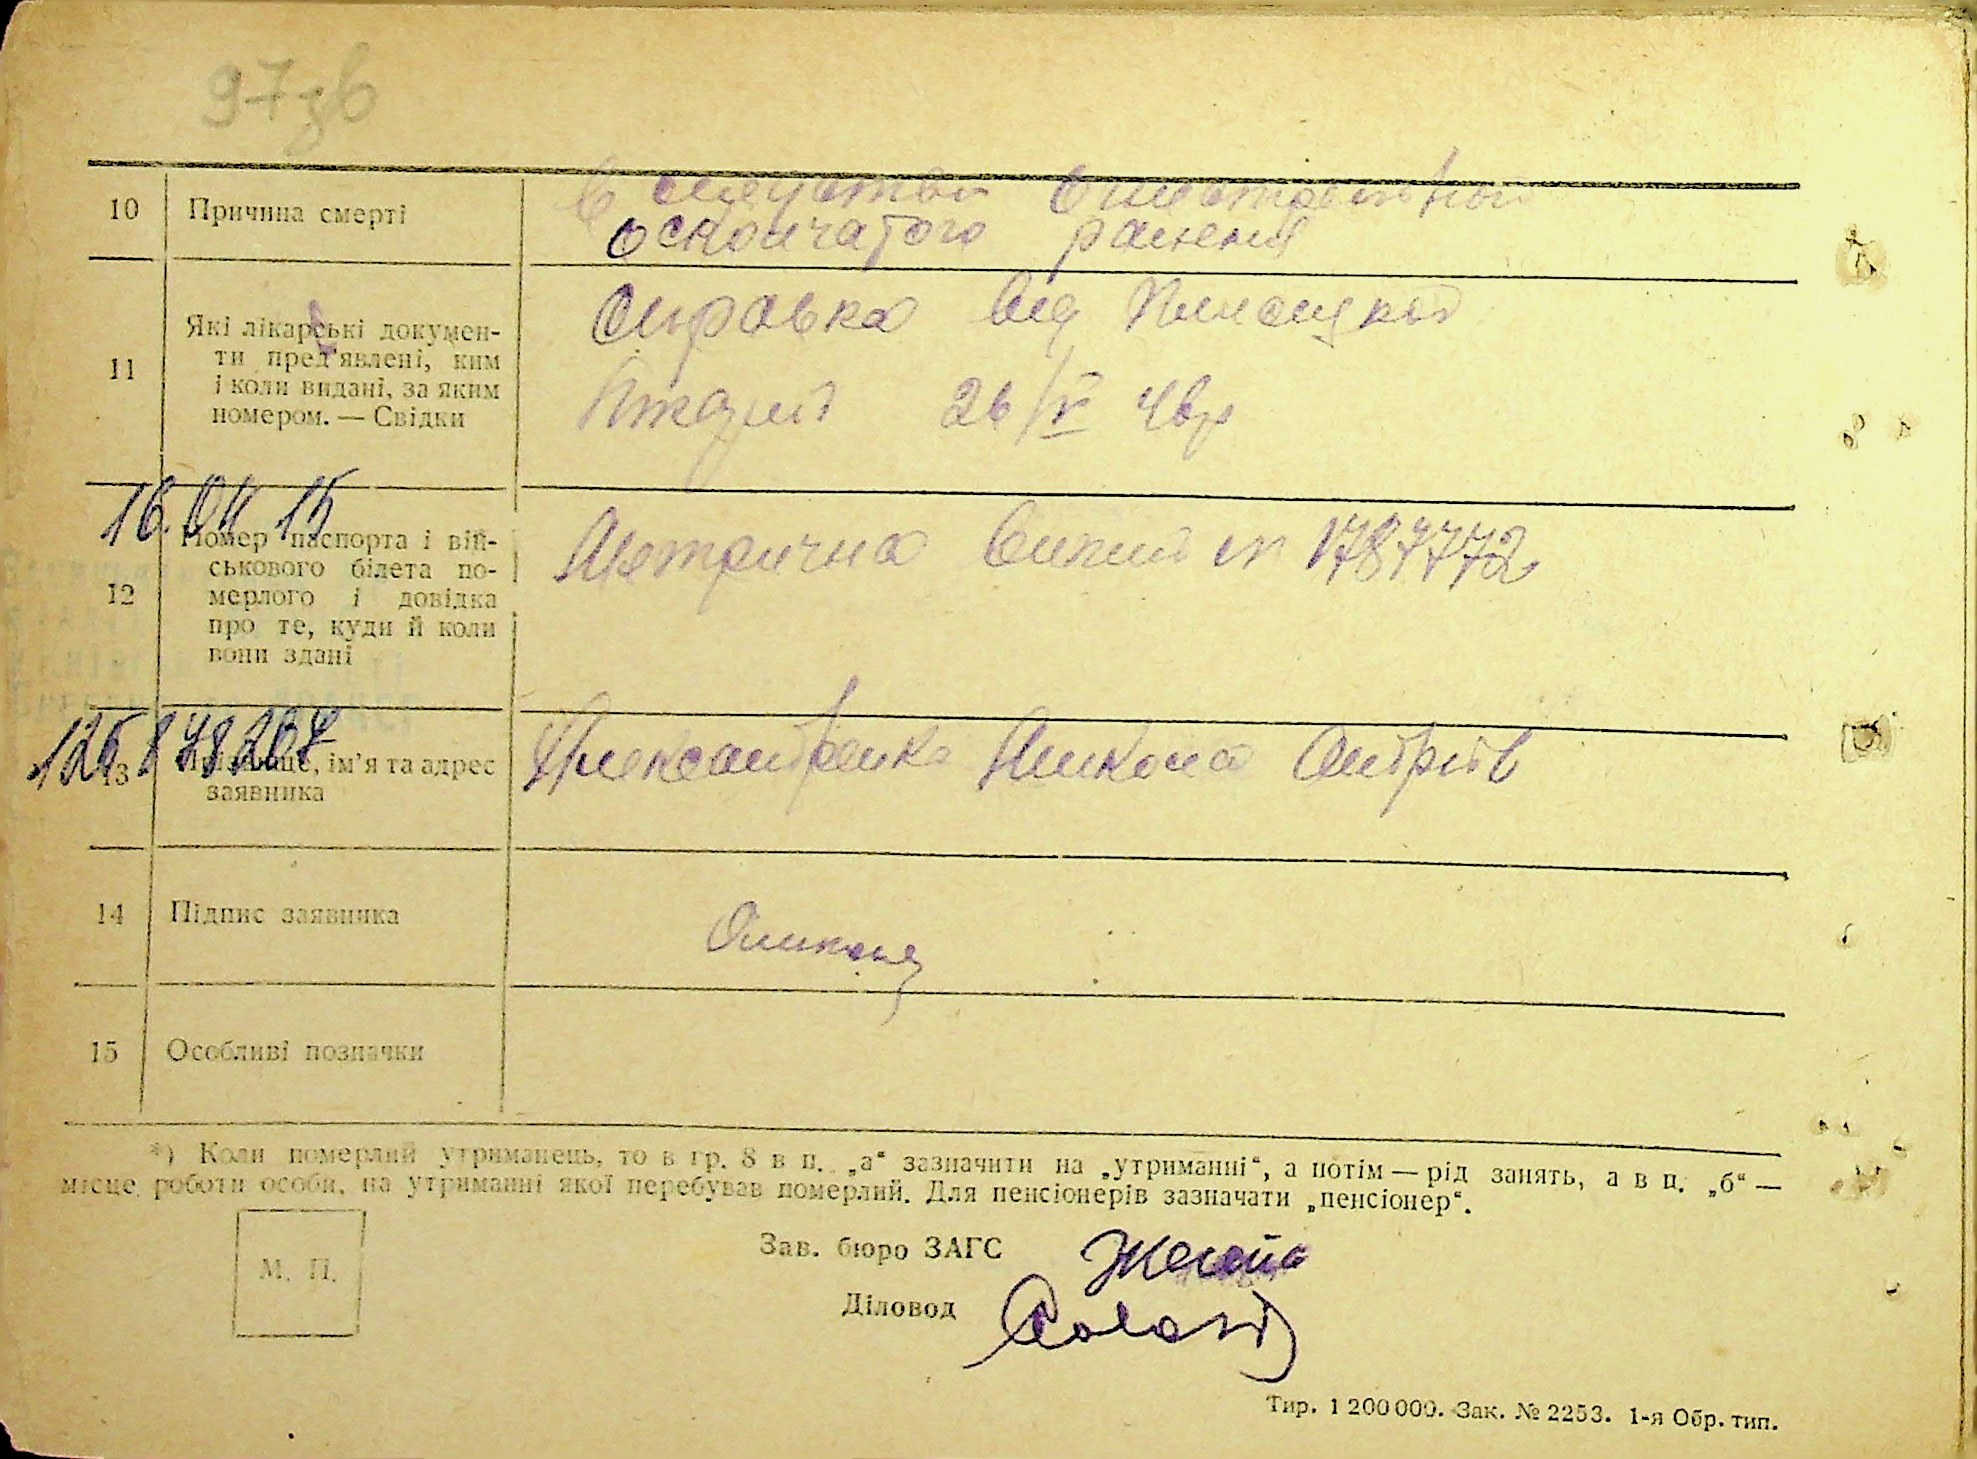 97зв
10 Причина смерті
оскольчатого ранения
11 Які лікарські докумен-
ти пред'явлені, ким
і коли видані, за яким
номером. — Свідки
Справка від
26/V 4вр
16. 15
12 Номер паспорта і вій-
ськового білета по-
мерлого і довідка
про те, куди й коли
вони здані
Метрична № 1787772
13 Прізвище, ім'я та адрес
заявника
Олександренко Никона Андріїв
14 Підпис заявника
15 Особливі позначки
*) Коли померлий утриманець, то в гр. 8 в п. „а“ зазначити на „утриманні“, а потім — рід занять, а в п. „б“ —
місце роботи особи, на утриманні якої перебував померлий. Для пенсіонерів зазначати „пенсіонер“.
М. П.
Зав. бюро ЗАГС
Діловод
Тир. 1 200 000. Зак. № 2253. 1-я Обр. тип.